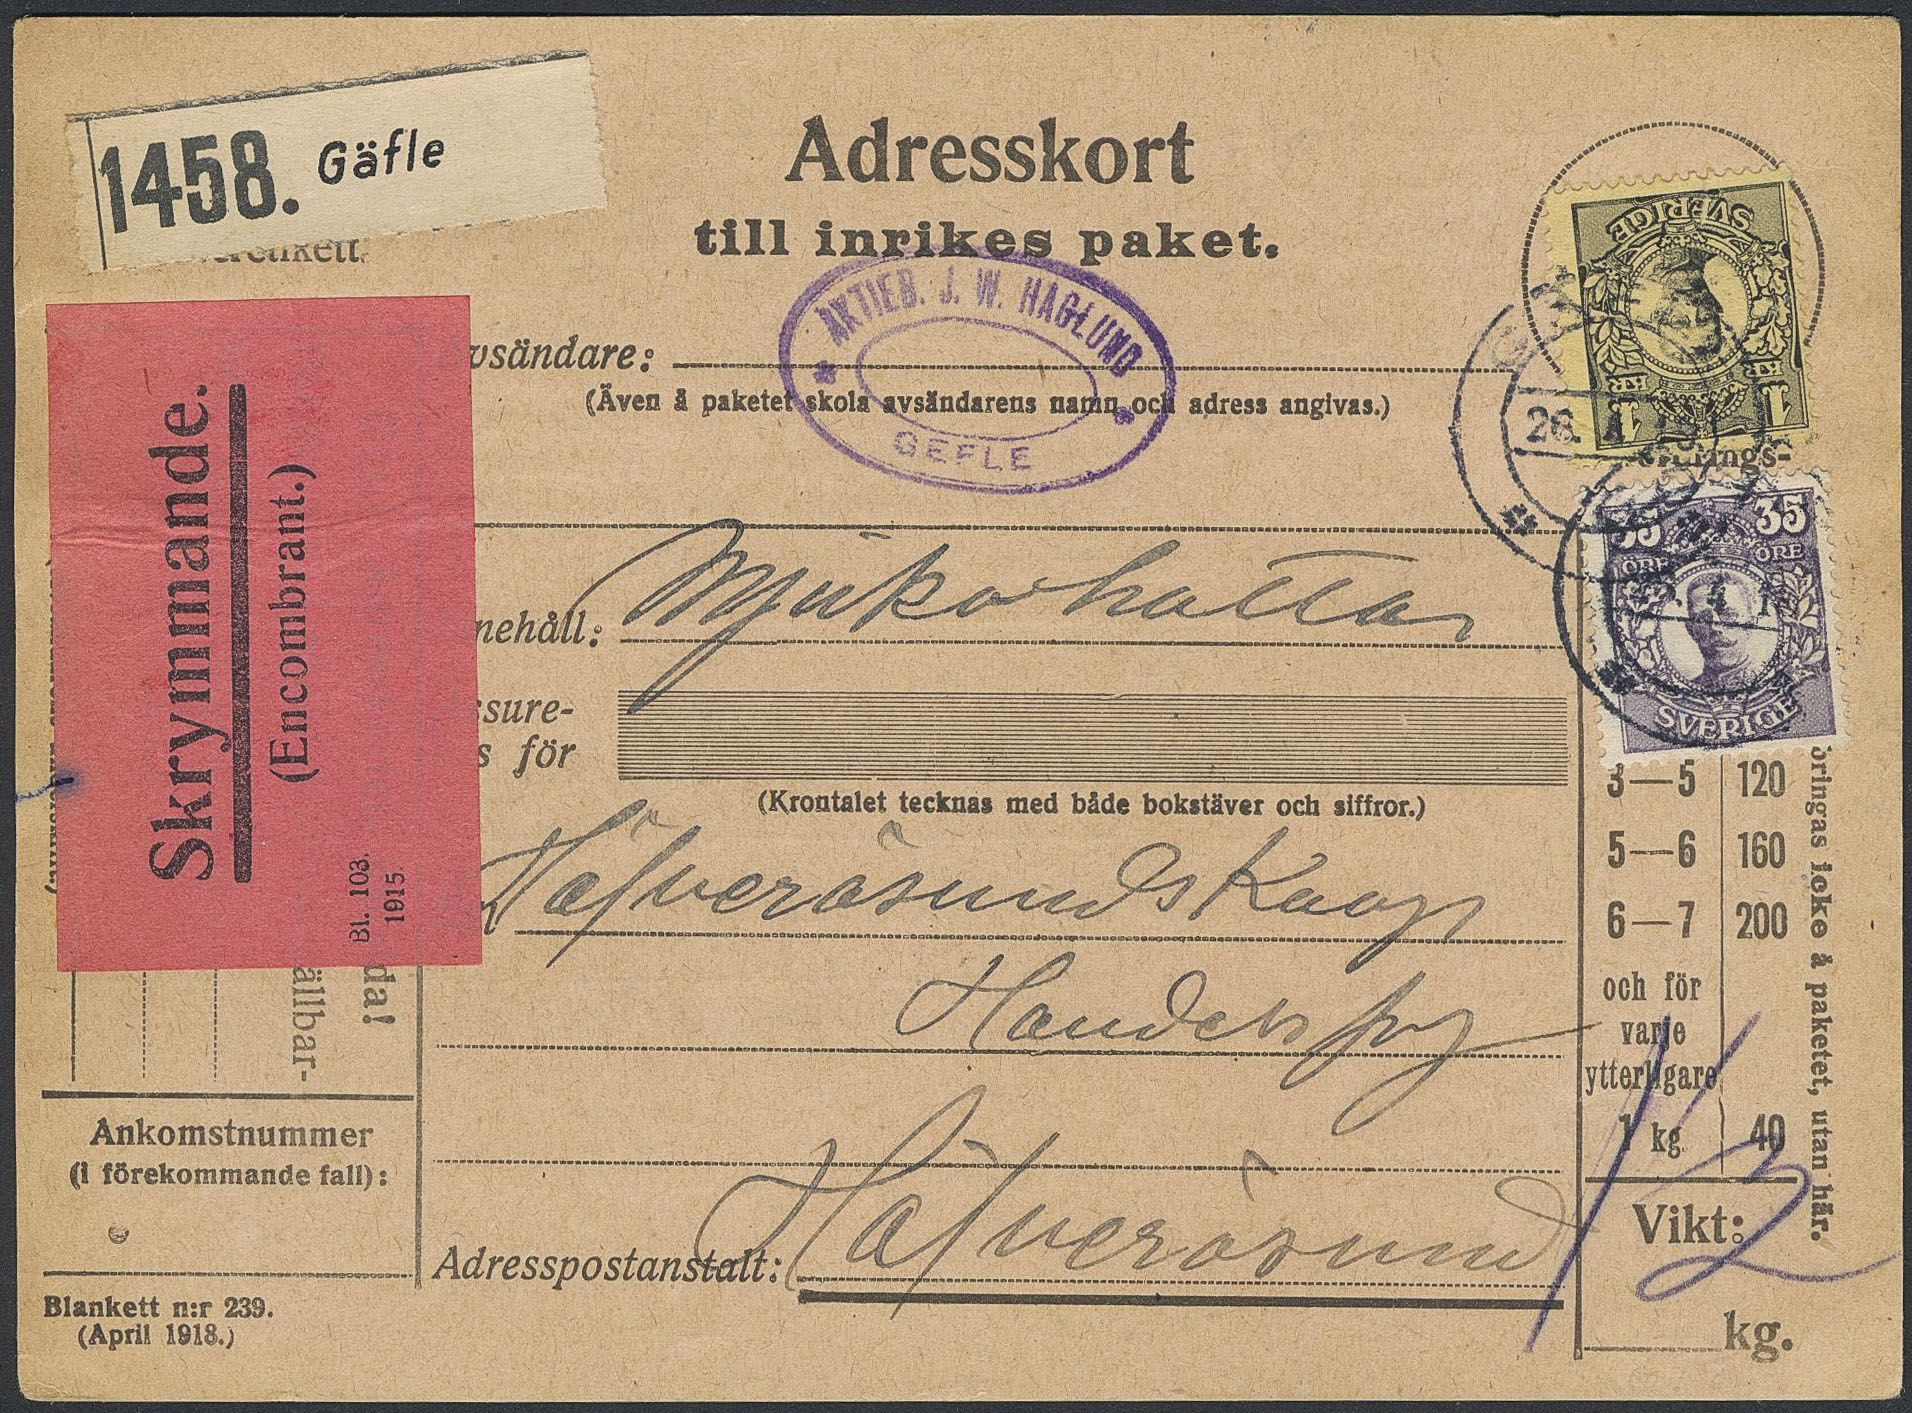 1458. Gäfle
Adresskort
till inrikes paket.
AKTIEB. J. W. HAGLUND
GEFLE
vsändare:
(Även å paketet skola avsändarens namn och adress angivas.)
SVERIGE
1 KR 1 KR
26.
rings-
35 35
ÖRE ÖRE
SVERIGE
Skrymmande.
(Encombrant.)
Bl. 103.
1915
nehåll: Mjuka hattar
ssure-
s för
(Krontalet tecknas med både bokstäver och siffror.)
Häfverösunds Koop
Handelsfrg
Häfverösund
Adresspostanstalt:
3—5 120
5—6 160
6—7 200
och för
varje
ytterligare
1 kg 40
Vikt:
12
kg.
öringas icke å paketet, utan här.
da!
ällbar-
Ankomstnummer
(i förekommande fall):
Blankett n:r 239.
(April 1918.)